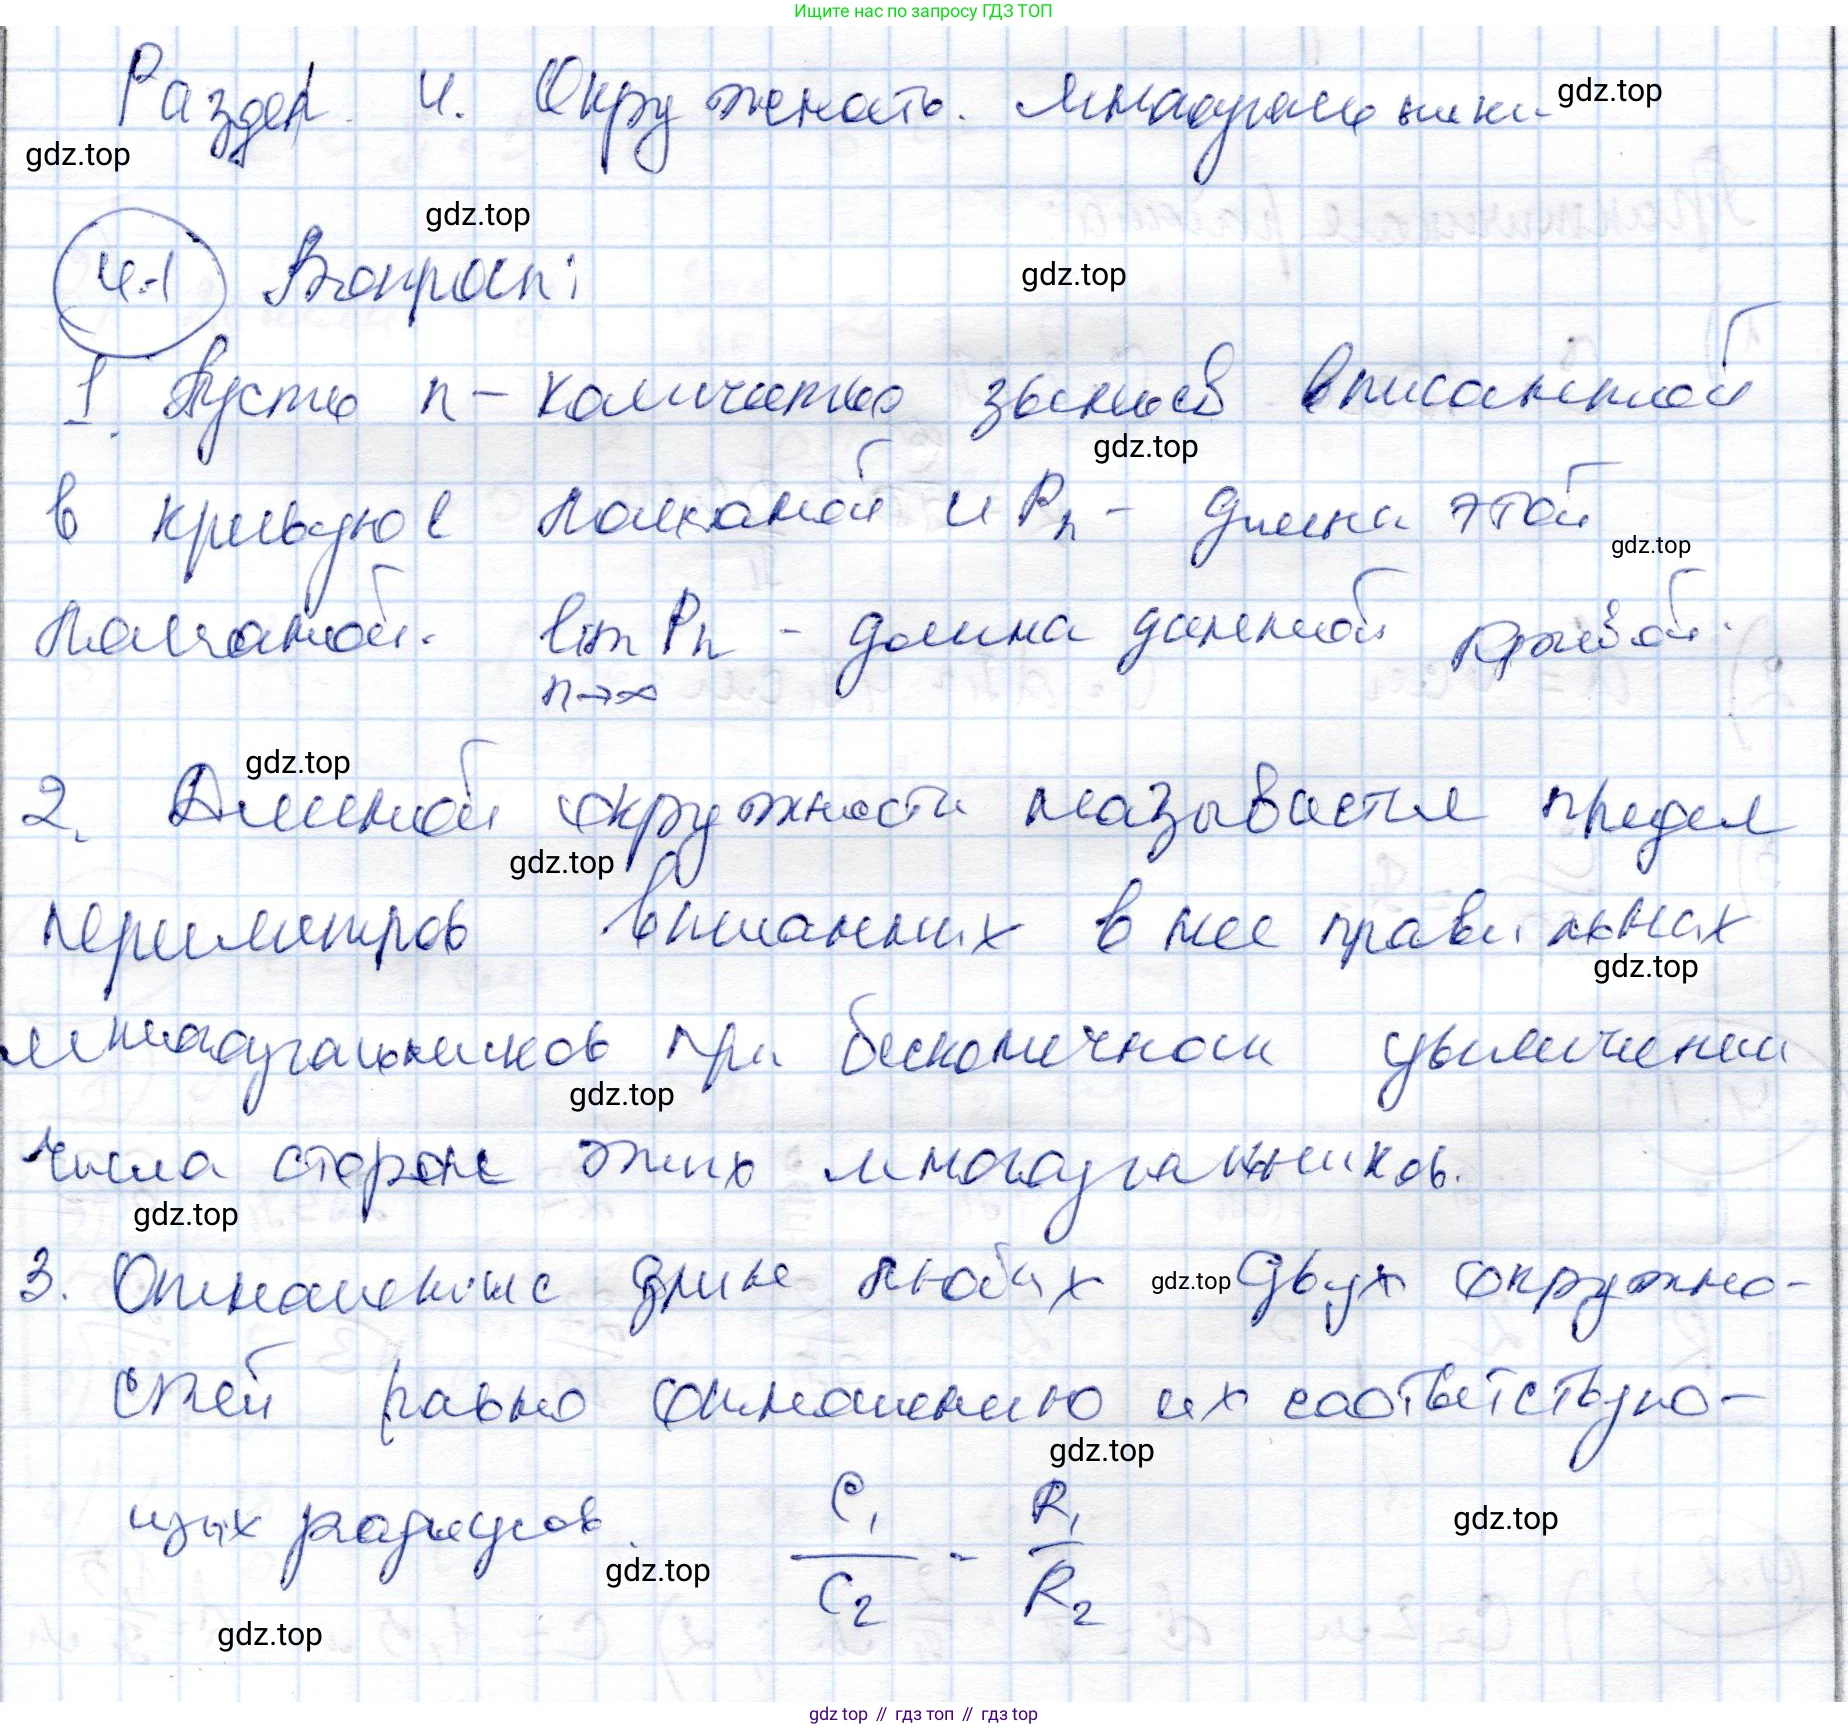 Ищите нас по запросу ГДЗ ТОП
Раздел 4. Окружность. Многоугольники.
gdz.top
gdz.top
gdz.top
4.1 Вопросы:
gdz.top
1. Пусть n - количество звеньев вписанной
gdz.top
в кривую ломаной и Pn - длина этой
gdz.top
ломаной. lim Pn - длина данной кривой.
n→∞
gdz.top
2. Длиной окружности называется предел
gdz.top
периметров вписанных в нее правильных
gdz.top
многоугольников при бесконечном увеличении
gdz.top
числа сторон этих многоугольников.
gdz.top
3. Отношение длин любых gdz.top двух окружно-
стей равно отношению их соответствую-
gdz.top
щих радиусов. C1/C2 = R1/R2
gdz.top
gdz.top
gdz.top
gdz top // гдз топ // гдз top